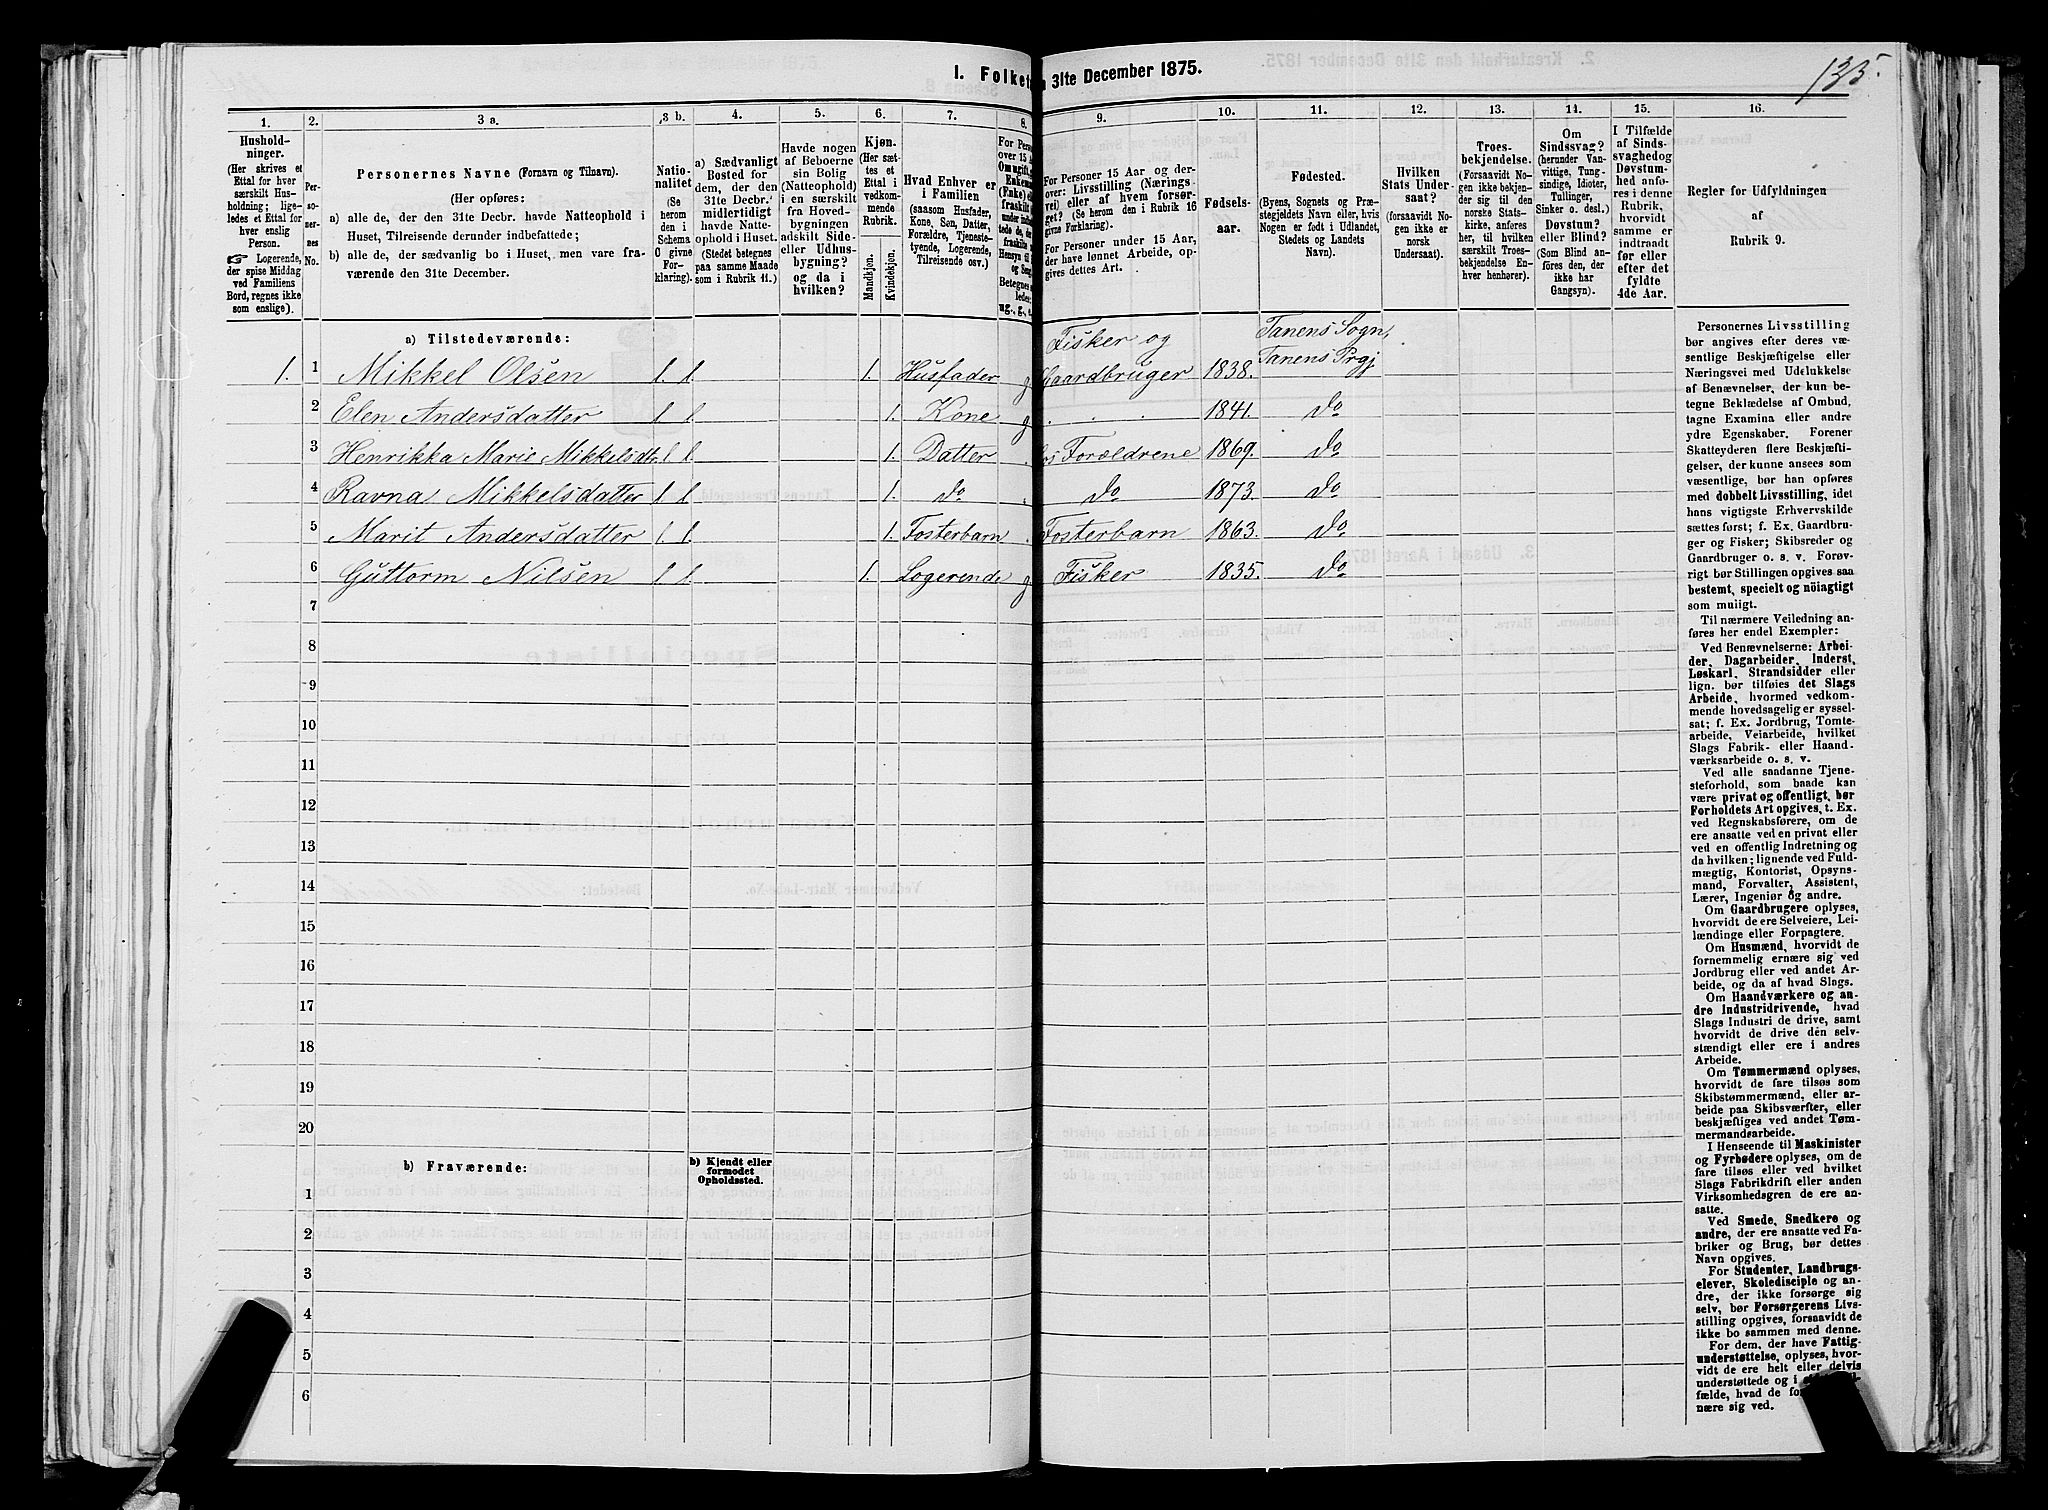 135.
I. Folket n 31te December 1875.
1. 2. 3 a. 3 b. 4. 5. 6. 7. 8. 9. 10. 11. 12. 13. 14. 15. 16.
Hushold-
ninger.
(Her skrives et
Ettal for hver
særskilt Hus-
holdning; lige-
ledes et Ettal for
hver enslig
Person.
☞ Logerende,
der spise Middag
ved Familiens
Bord, regnes ikke
som enslige).
Per-
so-
ner-
nes
No.
Personernes Navne (Fornavn og Tilnavn).
(Her opføres:
a) alle de, der den 31te Decbr. havde Natteophold i
Huset, Tilreisende derunder indbefattede;
b) alle de, der sædvanlig bo i Huset, men vare fra-
værende den 31te December.
Natio-
nalitet
(Se
herom
den i
Schema
C givne
For-
klaring).
a) Sædvanligt
Bosted for
dem, der den
31te Decbr.
midlertidigt
havde Natte-
ophold i Huset.
(Stedet betegnes
paa samme Maade
som i Rubrik 11.)
Havde nogen
af Beboerne
sin Bolig
(Natteophold)
i en særskilt
fra Hoved-
bygningen
adskilt Side-
eller Udhus-
bygning?
og da i
hvilken?
Kjøn.
(Her sæt-
tes et
Ettal i
vedkom-
mende
Rubrik.
Mandkjøn.
Kvindekjøn.
Hvad Enhver er
i Familien
(saasom Husfader,
Kone, Søn, Datter,
Forældre, Tjeneste-
tyende, Logerende,
Tilreisende osv.)
For Pers
over 15 Aa
Om ugift,
Enkem
(Enke) el
fraskilt
under indbe
tede de, der
fraskilte
Hensyn til
og Seng.
Betegnes s
ledes:
ug., g., e.
For Personer 15 Aar og der-
over: Livsstilling (Nærings-
vei) eller af hvem forsør-
get? (Se herom den i Rubrik 16
givne Forklaring).
For Personer under 15 Aar,
der have lønnet Arbeide, op-
gives dettes Art.
Fødsels-
aar.
Fødested.
(Byens, Sognets og Præ-
stegjeldets Navn eller, hvis
Nogen er født i Udlandet,
Stedets og Landets
Navn).
Hvilken
Stats Under-
saat?
(forsaavidt No-
gen ikke er
norsk
Undersaat).
Troes-
bekjendelse.
(Forsaavidt No-
gen ikke bekjen-
der sig til den
norske Stats-
kirke, anføres
her, til hvilken
særskilt Troes-
bekjendelse En-
hver henhører).
Om
Sindssvag?
(herunder Van-
vittige, Tung-
sindige, Idioter,
Tullinger,
Sinker o. desl.)
Døvstum?
eller Blind?
(Som Blind an-
føres den, der
ikke har
Gangsyn).
I Tilfælde
af Sinds-
svaghed og
Døvstum-
hed anfø-
res i denne
Rubrik,
hvorvidt
samme er
indtraadt
før eller
efter det
fyldte
4de Aar.
Regler for Udfyldningen
af
Rubrik 9.
a) Tilstedeværende:
1. 1 Mikkel Olsen 1. 1. 1. Husfader g Fisker og Gaardbruger 1838. Tanens Sogn, Tanens Prgj
2 Elen Andersdatter 1. 1. 1. Kone g . . . 1841. do
3 Henrikka Marie Mikkelsdt. 1 1. 1. Datter . os Forældrene 1869. do
4 Ravna Mikkelsdatter 1 1. 1. do . do 1873. do
5 Marit Andersdatter 1. 1. 1. Fosterbarn . Fosterbarn 1863. do
6 Guttorm Nilsen 1. 1. 1. Logerende g Fisker 1835. do
7
8
9
10
11
12
13
14
15
16
17
18
19
20
b) Fraværende:
b) Kjendt eller
formodet
Opholdssted.
1
2
3
4
5
6
Personernes Livsstilling
bør angives efter deres væ-
sentlige Beskjæftigelse eller
Næringsvei med Udelukkelse
af Benævnelser, der kun be-
tegne Beklædelse af Ombud,
tagne Examina eller andre
ydre Egenskaber. Forener
Skatteyderen flere Beskjæfti-
gelser, der kunne ansees som
væsentlige, bør han opføres
med dobbelt Livsstilling, idet
hans vigtigste Erhvervskilde
sættes først; f. Ex. Gaardbru-
ger og Fisker; Skibsreder og
Gaardbruger o. s. v. Forøv-
rigt bør Stillingen opgives saa
bestemt, specielt og nöiagtigt
som muligt.
Til nærmere Veiledning an-
føres her endel Exempler:
Ved Benævnelserne: Arbei-
der, Dagarbeider, Inderst,
Løskarl, Strandsidder eller
lign. bør tilføies det Slags
Arbeide, hvormed vedkom-
mende hovedsagelig er syssel-
sat; f. Ex. Jordbrug, Tomte-
arbeide, Veiarbeide, hvilket
Slags Fabrik- eller Haand-
værksarbeide o. s. v.
Ved alle saadanne Tjene-
steforhold, som baade kan
være privat og offentligt, bør
Forholdets Art opgives, t. Ex.
ved Regnskabsførere, om de
ere ansatte ved en privat eller
ved en offentlig Indretning og
da hvilken; lignende ved Fuld-
mægtig, Kontorist, Opsyns-
mand, Forvalter, Assistent,
Lærer, Ingeniør og andre.
Om Gaardbrugere oplyses,
hvorvidt de ere Selveiere, Lei-
lændinge eller Forpagtere.
Om Husmænd, hvorvidt de
fornemmelig ernære sig ved
Jordbrug eller ved andet Ar-
beide, og da af hvad Slags.
Om Haandværkere og an-
dre Industridrivende, hvad
Slags Industri de drive, samt
hvorvidt de drive den selv-
stændigt eller ere i andres
Arbeide.
Om Tømmermænd oplyses,
hvorvidt de fare tilsøs som
Skibstømmermænd, eller ar-
beide paa Skibsværfter, eller
beskjæftiges ved andet Tøm-
mermandsarbeide.
I Henseende til Maskinister
og Fyrbødere oplyses, om de
fare tilsøs eller ved hvilket
Slags Fabrikdrift eller anden
Virksomhedsgren de ere an-
satte.
Ved Smede, Snedkere og
andre, der ere ansatte ved Fa-
briker og Brug, bør dettes
Navn opgives.
For Studenter, Landbrugs-
elever, Skoledisciple og an-
dre, der ikke forsørge sig
selv, bør Forsørgerens Livs-
stilling opgives, forsaavidt de
ikke bo sammen med denne.
For dem, der have Fattig-
understøttelse, oplyses, hvor-
vidt de ere helt eller delvis
understøttede og i
fælde, hvad de for
nære sig ved.